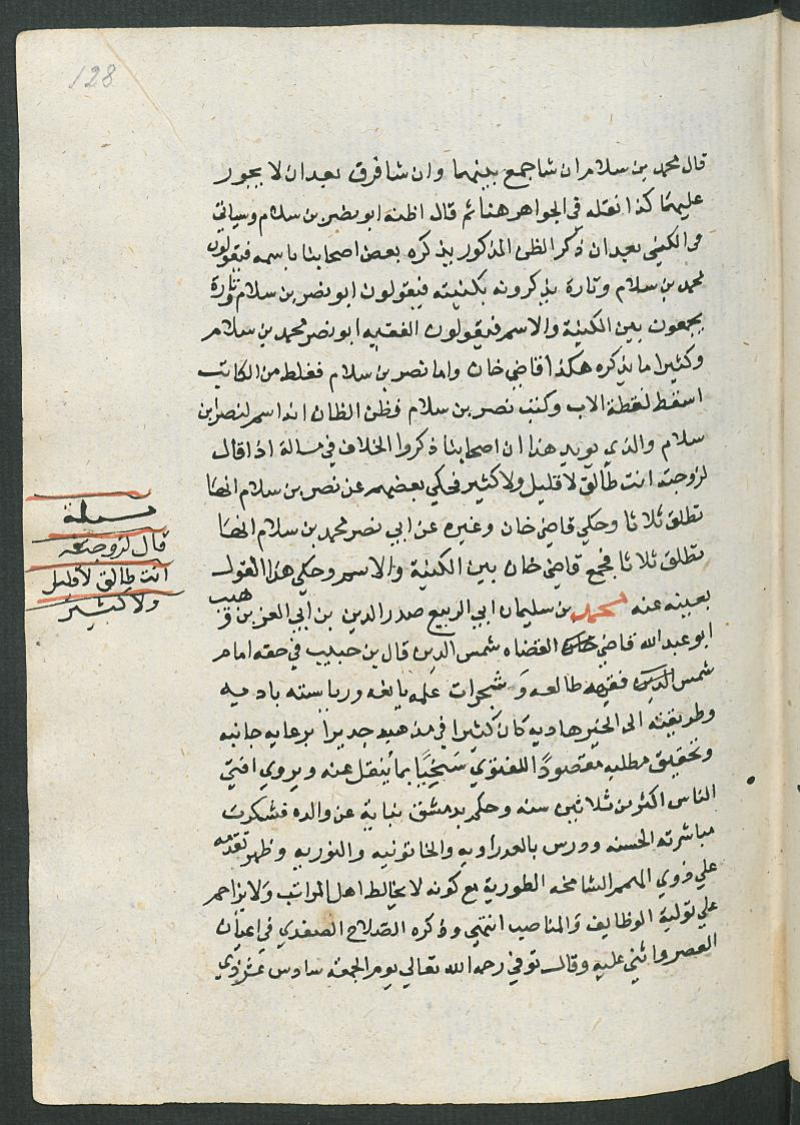 128
قال محمد بن سلام ان شا جمع بينهما وان شا فرق بعد ان لا يجور
عليهما كذا نقله في الجواهر هنا ثم قال اظنه ابو نصر بن سلام وسياتي
في الكني بعد ان ذكر الظن المذكور يذكره بعض اصحابنا باسمه فيقولون
محمد بن سلام وتارة يذكرونه بكنيته فيقولون ابو نصر بن سلام وتارة
يجمعون بين الكنية والاسم فيقولون الفقيه ابو نصر محمد بن سلام
وكثيرا ما يذكره هكذا قاضي خان واما نصر بن سلام فغلط من الكاتب
اسقط لفظة الاب وكتب نصر بن سلام فظن الظان انه اسم لنصر بن
سلام والذي يويد هذا ان اصحابنا ذكروا الخلاف في مسالة اذا قال
لزوجته انت طالق لا قليل ولا كثير فحكي بعضهم عن نصر بن سلام انها
تطلق ثلاثا وحكي قاضي خان وغيره عن ابي نصر محمد بن سلام انها
تطلق ثلاثا فجمع قاضي خان بين الكنية والاسم وحكي هذا القول
بعينه عنه محمد بن سليمان ابي الربيع صدر الدين بن ابي العز بن وهيب
ابو عبد الله قاضي القضاه شمس الدين قال بن حبيب في حقه امام
شمس الدين فقيهه طالعه و شجرات علمه يانعه ورياسته باديه
وطريقته الى الخير هاديه كان كثيرا في مذهبه جديرا برعايه جانبه
وتحقيق مطلبه مقصودًا للفتوي سَخِيًّا بما يُنقل عنه ويروي افتي
الناس اكثر من ثلاثين سنه وحكم بدمشق نيابة عن والده فشكرت
مباشرته الحسنه ودرس بالعدراويه والخاتونيه والنوريه وظهر تقدمه
علي ذوي الهمم الشامخه الطورية مع كونه لا يخالط اهل المراتب ولا يزاحم
علي تولية الوظايف والمناصب انتهي وذكره الصلاح الصفدي في اعيان
العصر واثني عليه وقال توفي رحمه الله تعالي يوم الجمعه سادس عشر ذي
مسالة
قال لزوجته
انت طالق لا قليل
ولا كثير